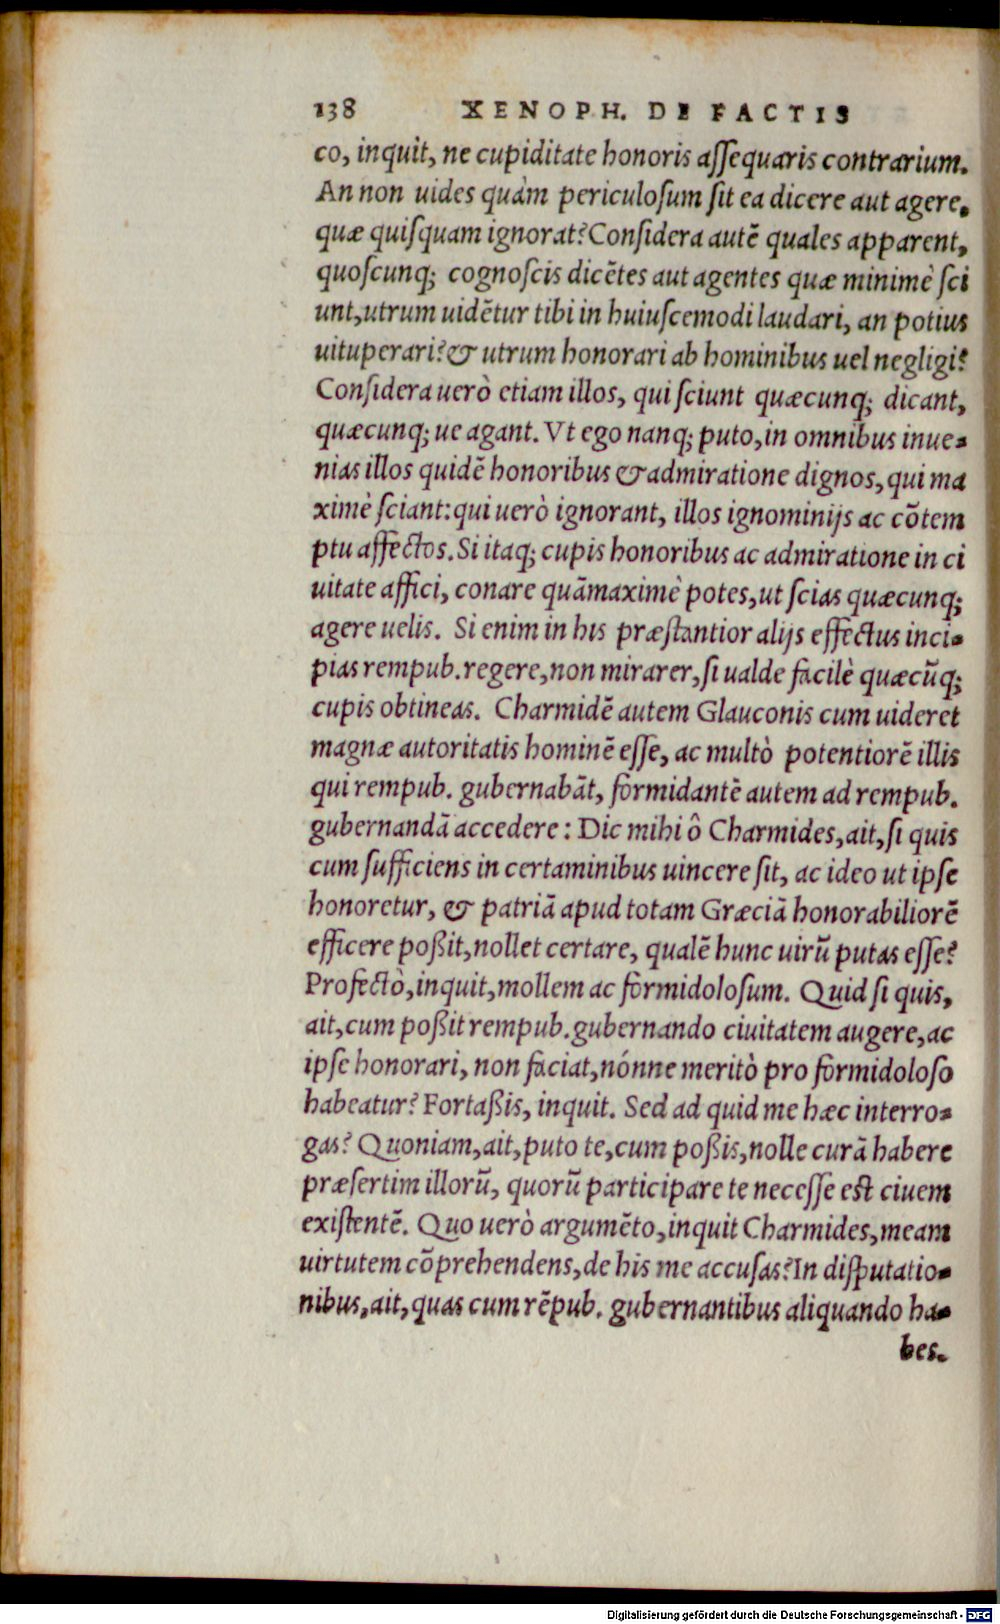 138 XENOPH. DE FACTIS
co, inquit, ne cupiditate honoris assequaris contrarium.
An non uides quàm periculosum sit ea dicere aut agere,
quæ quisquam ignorat? Considera autē quales apparent,
quoscunq; cognoscis dicētes aut agentes quæ minimè sci
unt, utrum uidētur tibi in huiuscemodi laudari, an potius
uituperari? & utrum honorari ab hominibus uel negligi?
Considera uerò etiam illos, qui sciunt quæcunq; dicant,
quæcunq; ue agant. Vt ego nanq; puto, in omnibus inue-
nias illos quidē honoribus & admiratione dignos, qui ma
ximè sciant: qui uerò ignorant, illos ignominijs ac cōtem
ptu affectos. Si itaq; cupis honoribus ac admiratione in ci
uitate affici, conare quāmaximè potes, ut scias quæcunq;
agere uelis. Si enim in his præstantior alijs effectus inci-
pias rempub. regere, non mirarer, si ualde facilè quæcūq;
cupis obtineas. Charmidē autem Glauconis cum uideret
magnæ autoritatis hominē esse, ac multò potentiorē illis
qui rempub. gubernabāt, formidantē autem ad rempub.
gubernandā accedere: Dic mihi ô Charmides, ait, si quis
cum sufficiens in certaminibus uincere sit, ac ideo ut ipse
honoretur, & patriā apud totam Græciā honorabiliorē
efficere poßit, nollet certare, qualē hunc uirū putas esse?
Profectò, inquit, mollem ac formidolosum. Quid si quis,
ait, cum poßit rempub. gubernando ciuitatem augere, ac
ipse honorari, non faciat, nónne meritò pro formidoloso
habeatur? Fortaßis, inquit. Sed ad quid me hæc interro-
gas? Quoniam, ait, puto te, cum poßis, nolle curā habere
præsertim illorū, quorū participare te necesse est ciuem
existentē. Quo uerò argumēto, inquit Charmides, meam
uirtutem cōprehendens, de his me accusas? In disputatio-
nibus, ait, quas cum rēpub. gubernantibus aliquando ha-
bes.
Digitalisierung gefördert durch die Deutsche Forschungsgemeinschaft - DFG